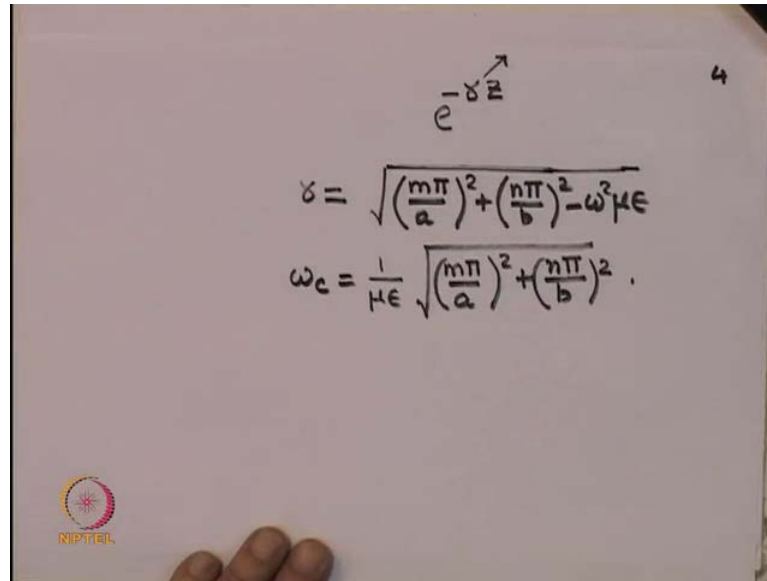 4
e^{-γz}
γ = √((mπ/a)² + (nπ/b)² - ω²με)
ω_c = 1/με √((mπ/a)² + (nπ/b)²) .
NPTEL